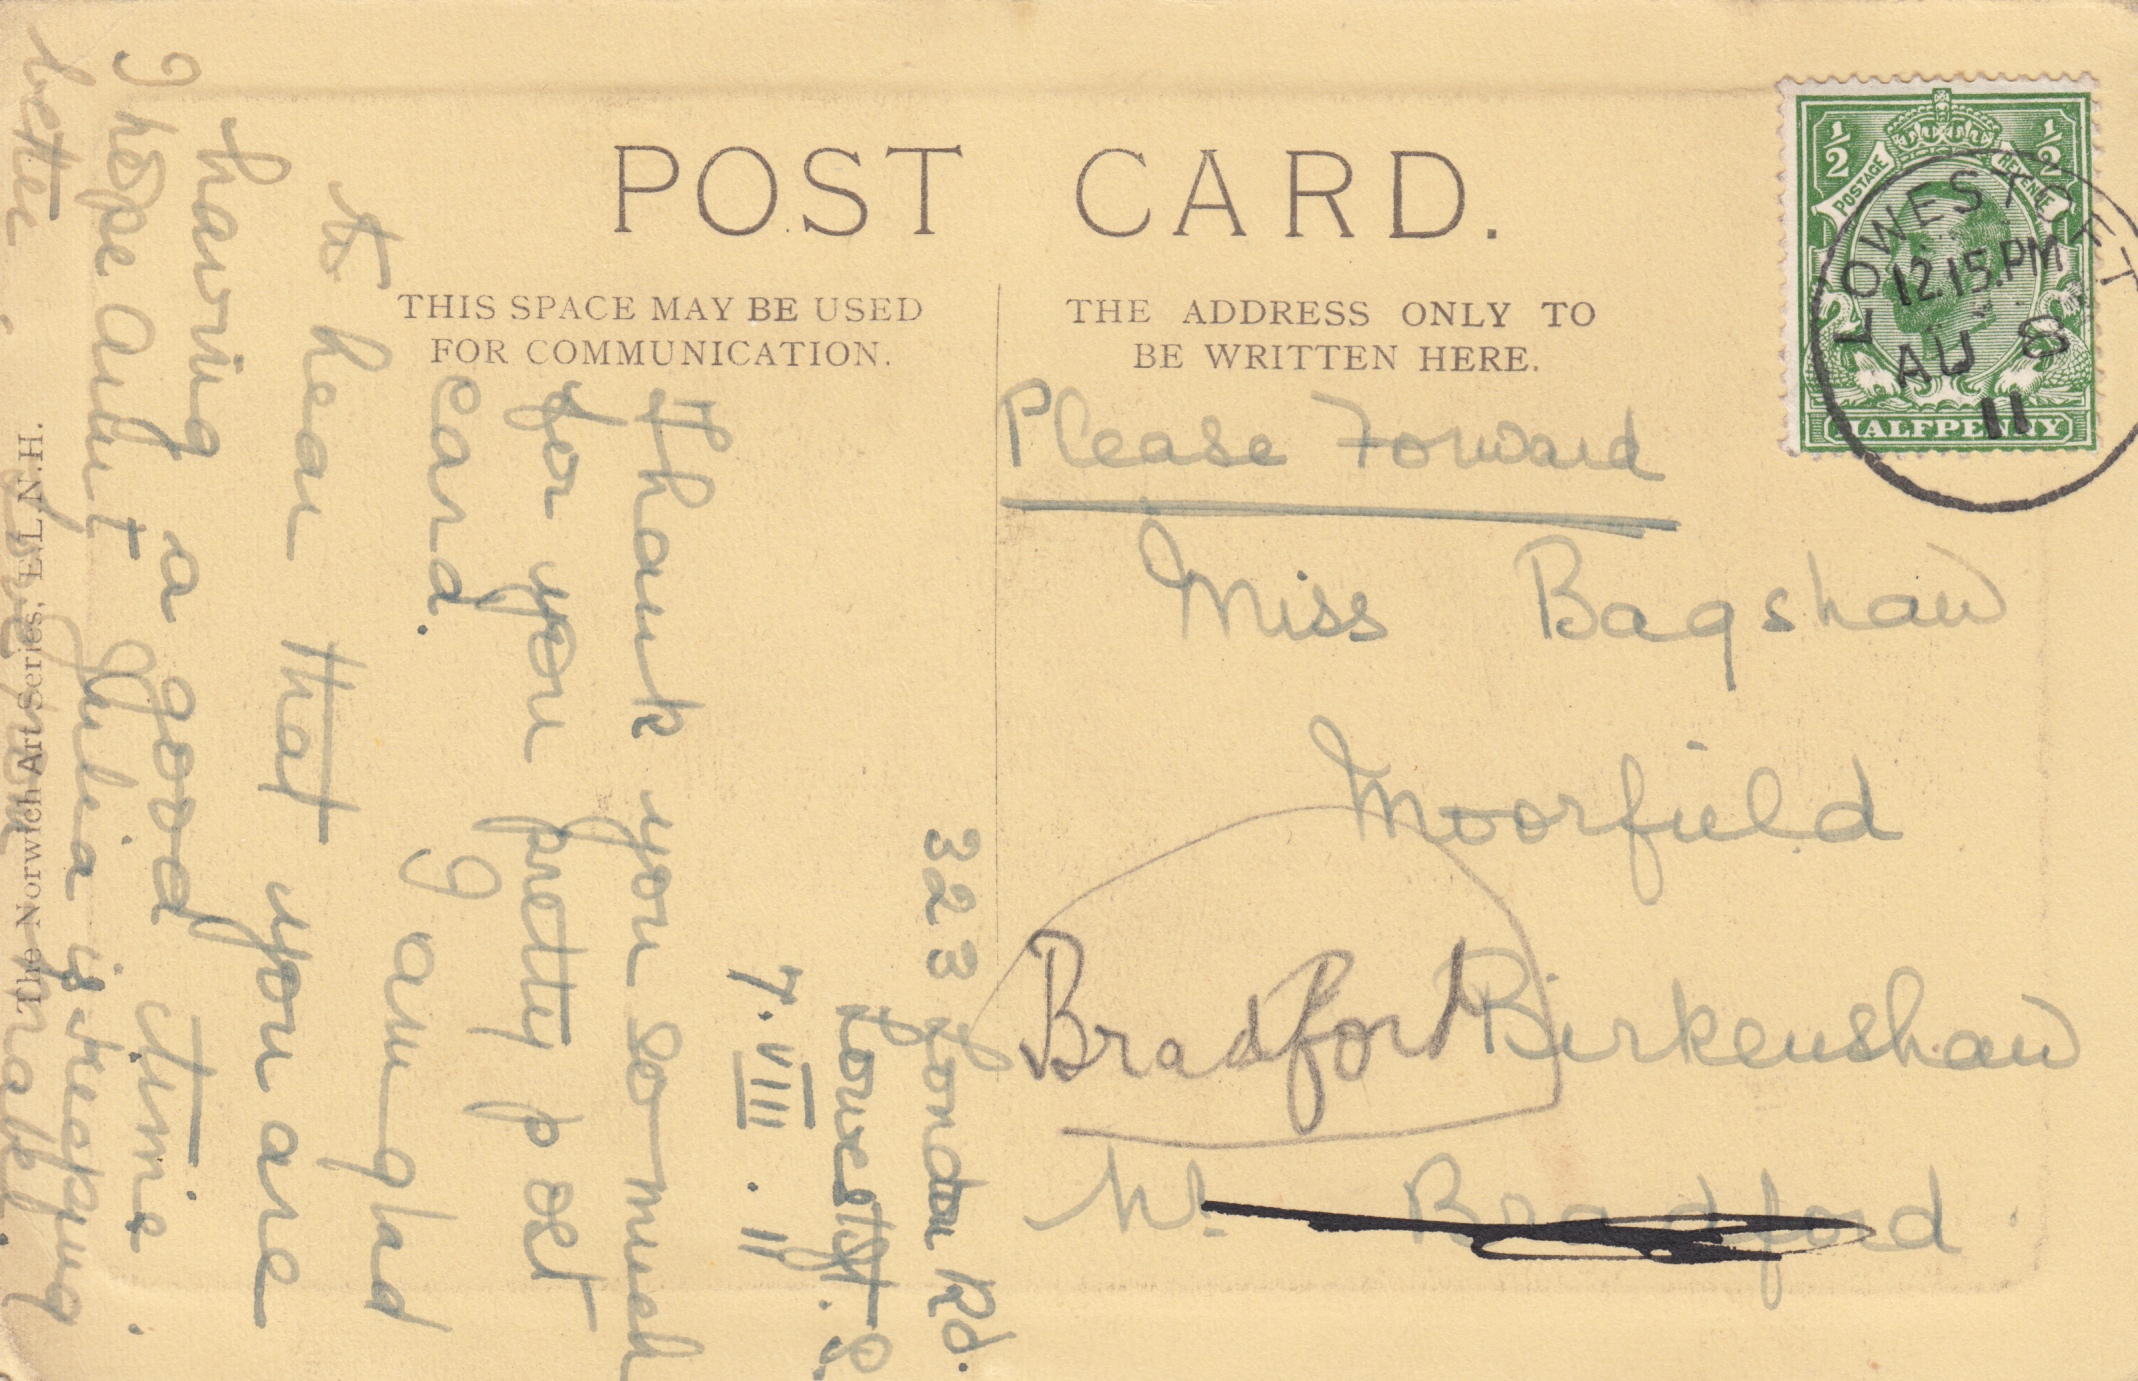 POST CARD.
THIS SPACE MAY BE USED
FOR COMMUNICATION.
THE ADDRESS ONLY TO
BE WRITTEN HERE.
½ ½
POSTAGE REVENUE
HALFPENNY
LOWESTOFT
12.15.PM
AU 8
11
Please Forward
Miss Bagshaw
Moorfield
Birkenshaw
Bradford
Nr Bradford
323 London Rd.
Lowestoft. S.
7.VIII.11
Thank you so much
for you pretty post
card. I am glad
to hear that you are
having a good time.
I hope Aunt Julia is keeping
better.
The Norwich Art Series, E.L.N.H.